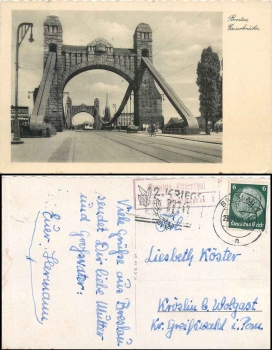 Breslau
Kaiserbrücke
Viele Grüße aus Breslau
sendet Dir liebe Mutter
und Großvater
Euer Hermann
2. KRIEGS
6 6
Deutsches Reich
Liesbeth Köster
Kröslin b. Wolgast
Kr. Greifswald i. Pom.